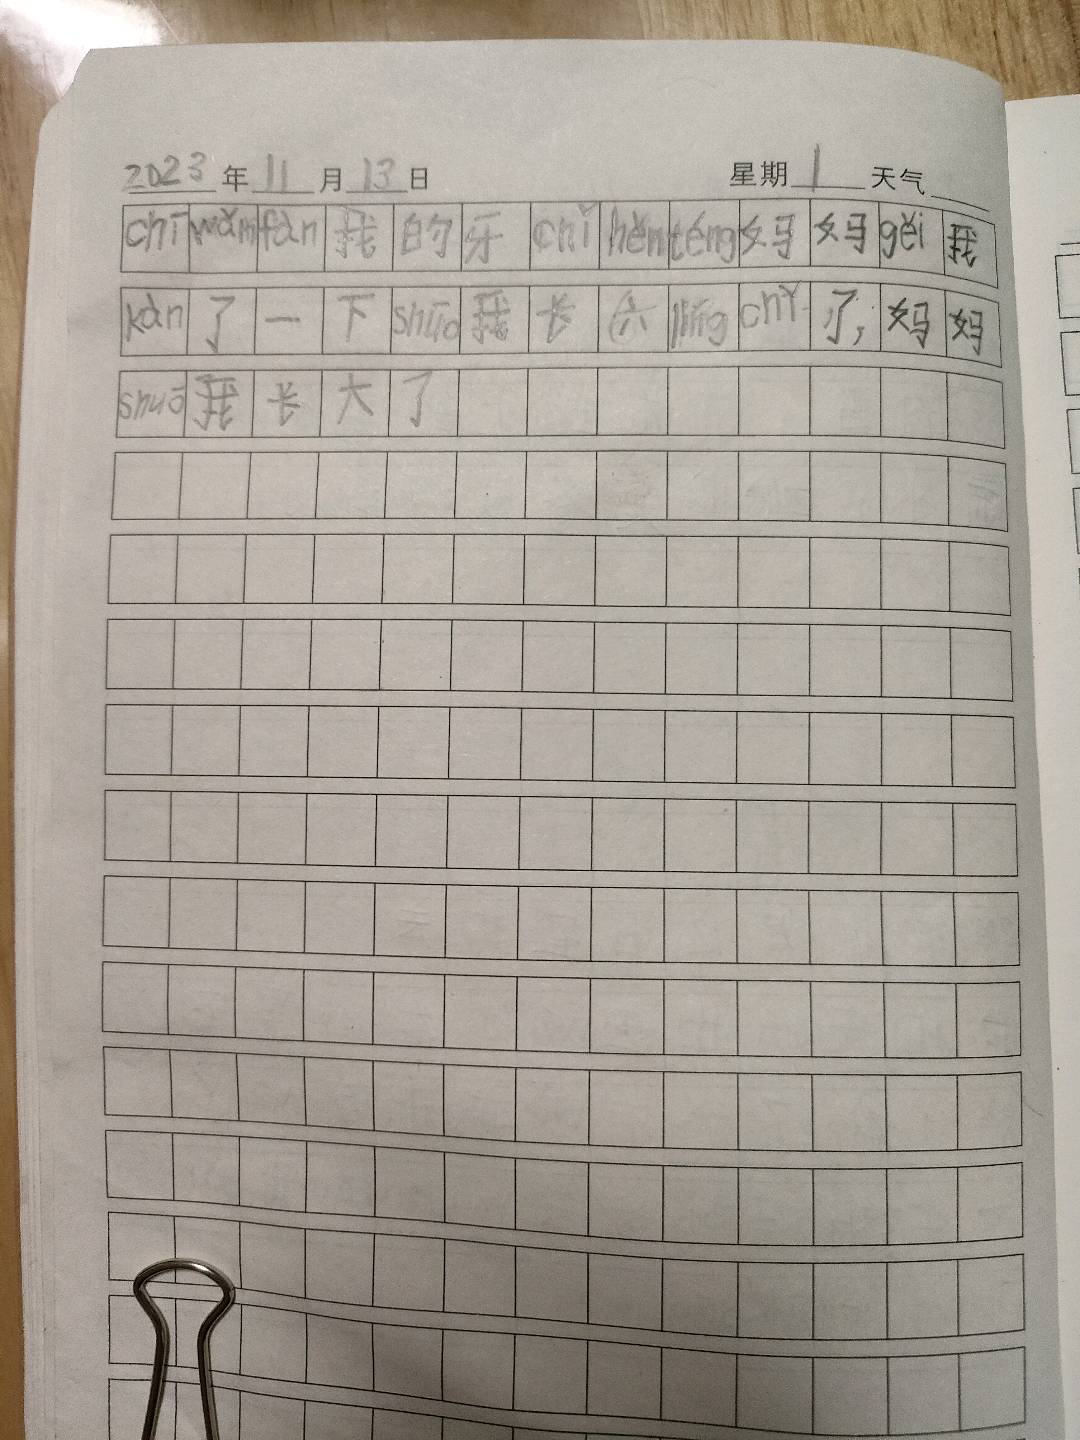 2023年11月13日 星期1天气
chī wǎn fàn 我的牙 chǐ hěn téng 妈妈 gěi 我
kàn 了一下 shuō 我长六 líng chǐ 了,妈妈
shuō 我长大了